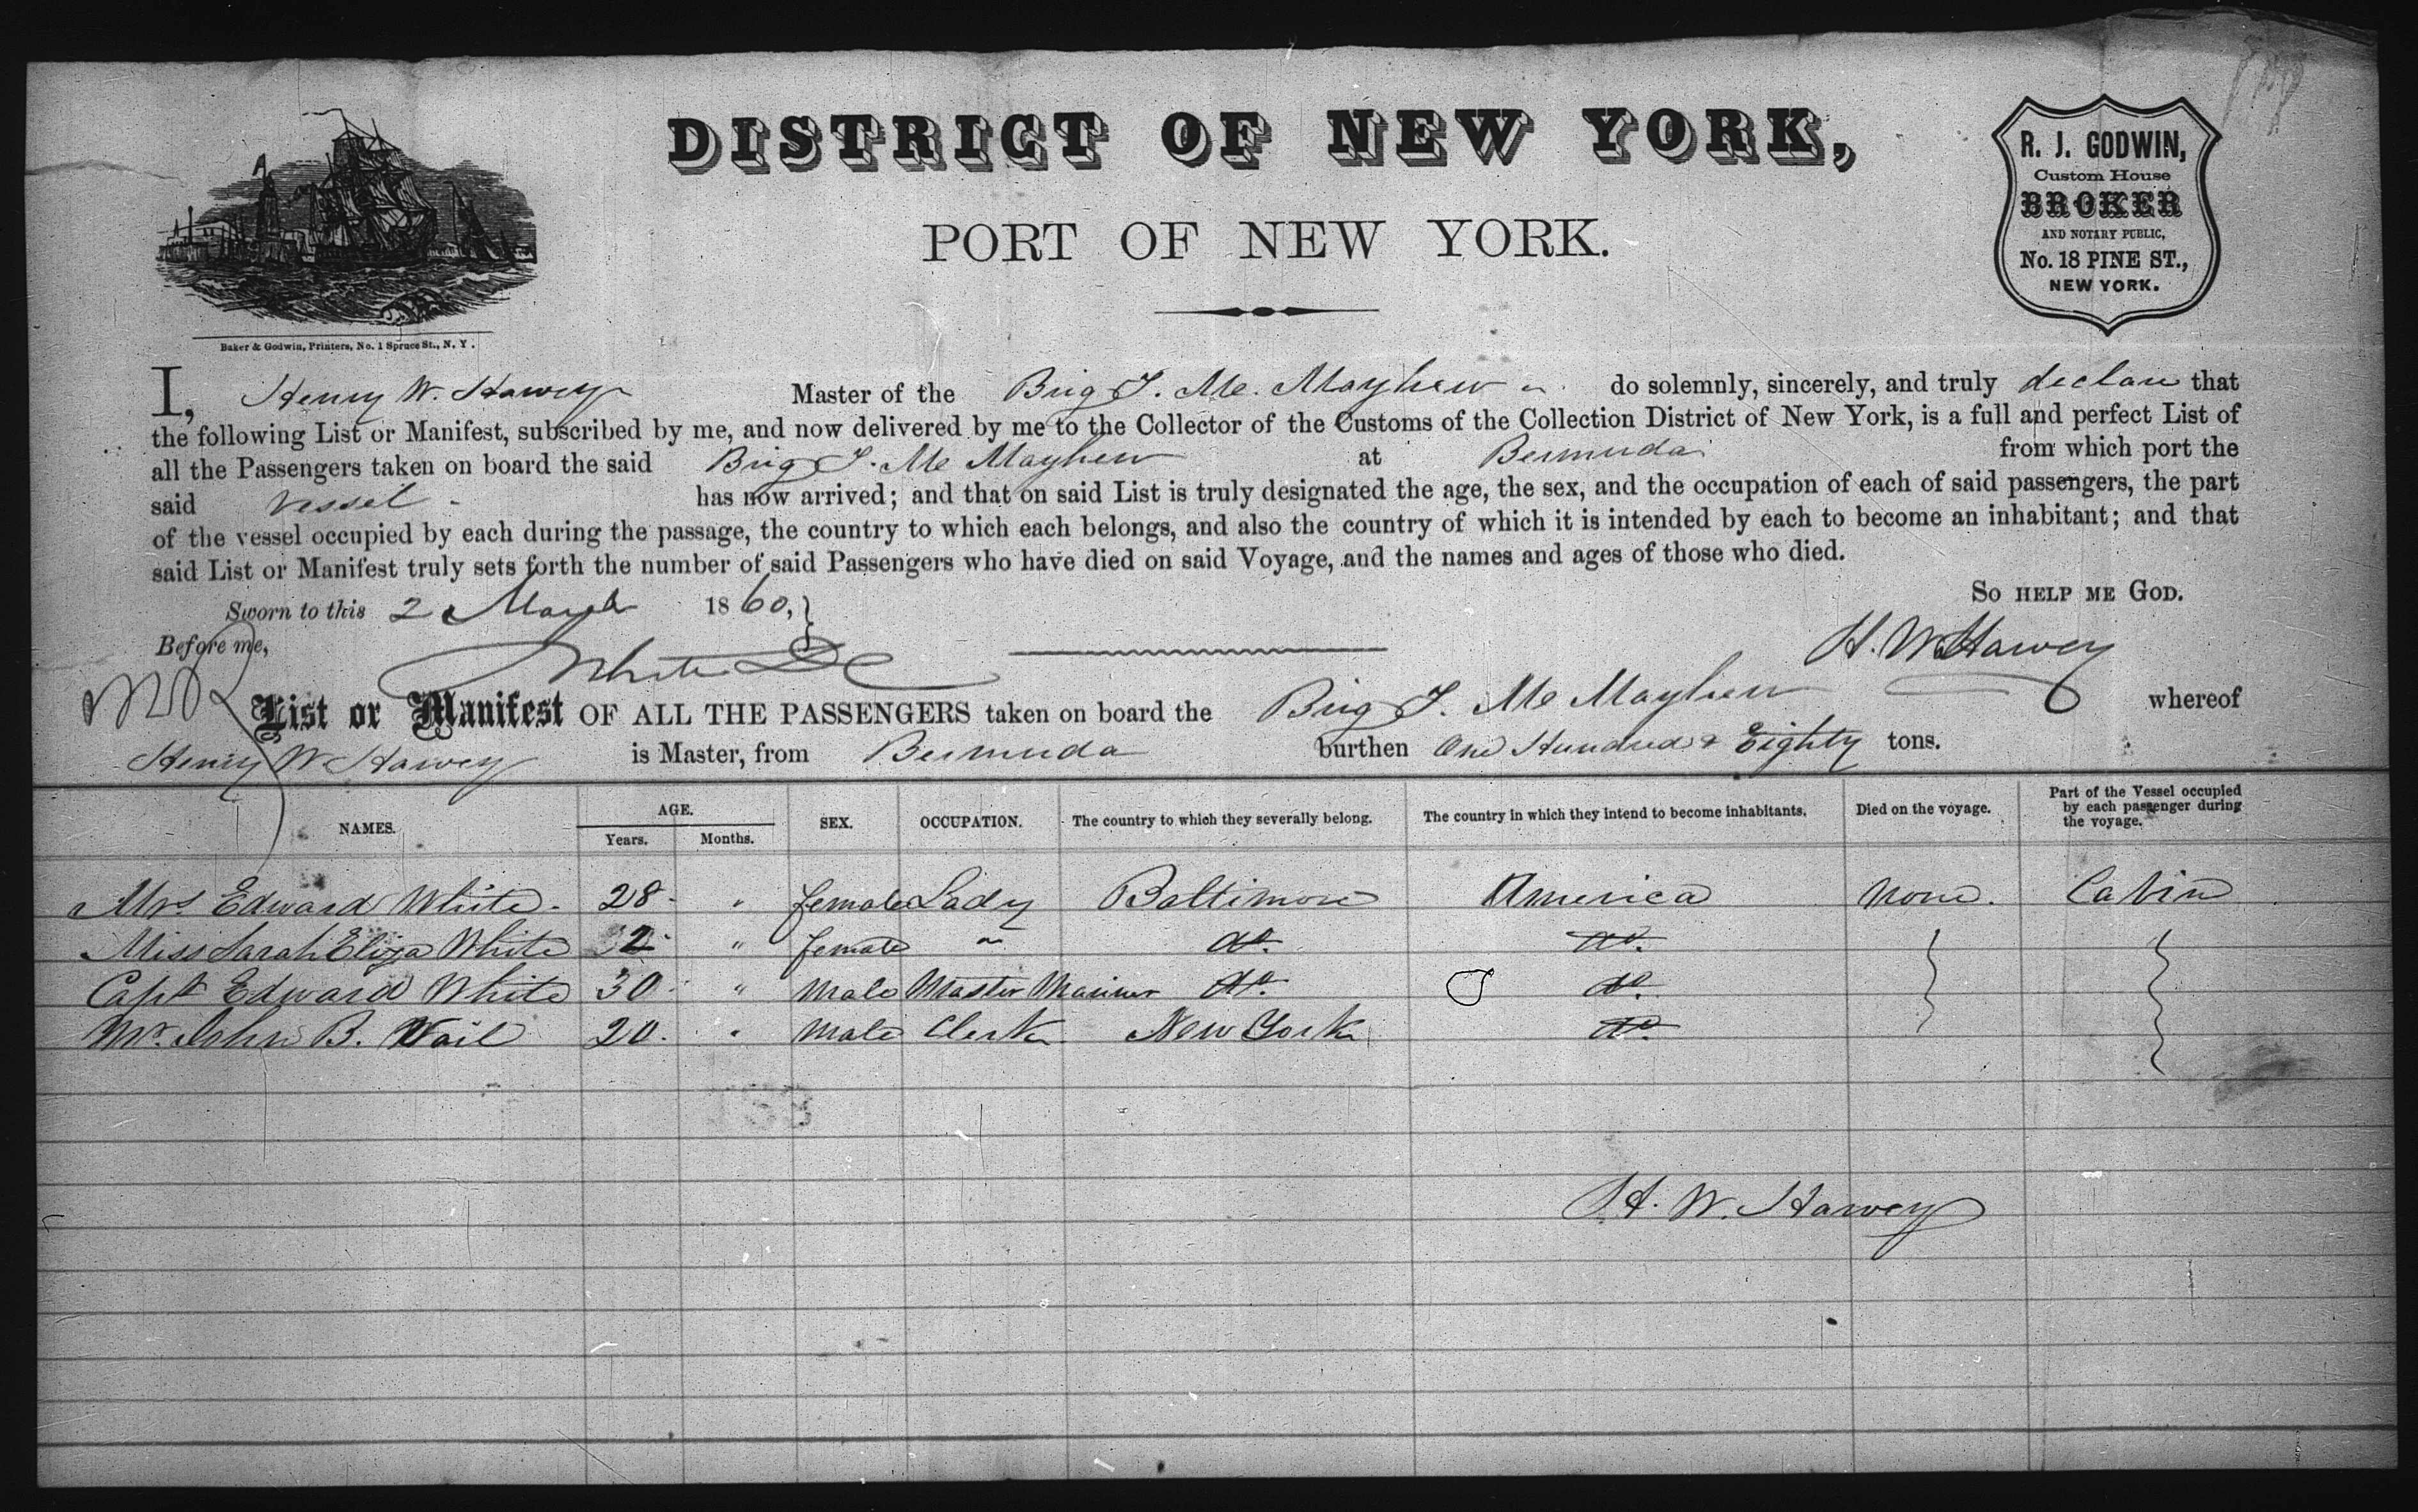 DISTRICT OF NEW YORK,
PORT OF NEW YORK.
R. J. GODWIN,
Custom House
BROKER
AND NOTARY PUBLIC,
No. 18 PINE ST.,
NEW YORK.
Baker & Godwin, Printers, No. 1 Spruce St., N. Y.
I, Henry W. Harvey Master of the Brig T. Mc. Mayhew do solemnly, sincerely, and truly declare that
the following List or Manifest, subscribed by me, and now delivered by me to the Collector of the Customs of the Collection District of New York, is a full and perfect List of
all the Passengers taken on board the said Brig T. Mc Mayhew at Bermuda from which port the
said vessel has now arrived; and that on said List is truly designated the age, the sex, and the occupation of each of said passengers, the part
of the vessel occupied by each during the passage, the country to which each belongs, and also the country of which it is intended by each to become an inhabitant; and that
said List or Manifest truly sets forth the number of said Passengers who have died on said Voyage, and the names and ages of those who died.
So HELP ME GOD.
Sworn to this 2 March 1860,
Before me,
H. W. Harvey
List or Manifest OF ALL THE PASSENGERS taken on board the Brig T. Mc Mayhew whereof
Henry W Harvey is Master, from Bermuda burthen One Hundred & Eighty tons.
NAMES. AGE. Years. Months. SEX. OCCUPATION. The country to which they severally belong. The country in which they intend to become inhabitants. Died on the voyage. Part of the Vessel occupied by each passenger during the voyage.
Mrs Edward White. 28 " female Lady Baltimore America none. Cabin
Miss Sarah Eliza White 2 " female " do. do.
Capt Edward White 30 " male Master Mariner do. do.
Mr. John B. Vail 20. " male Clerk New York do.
H. W. Harvey